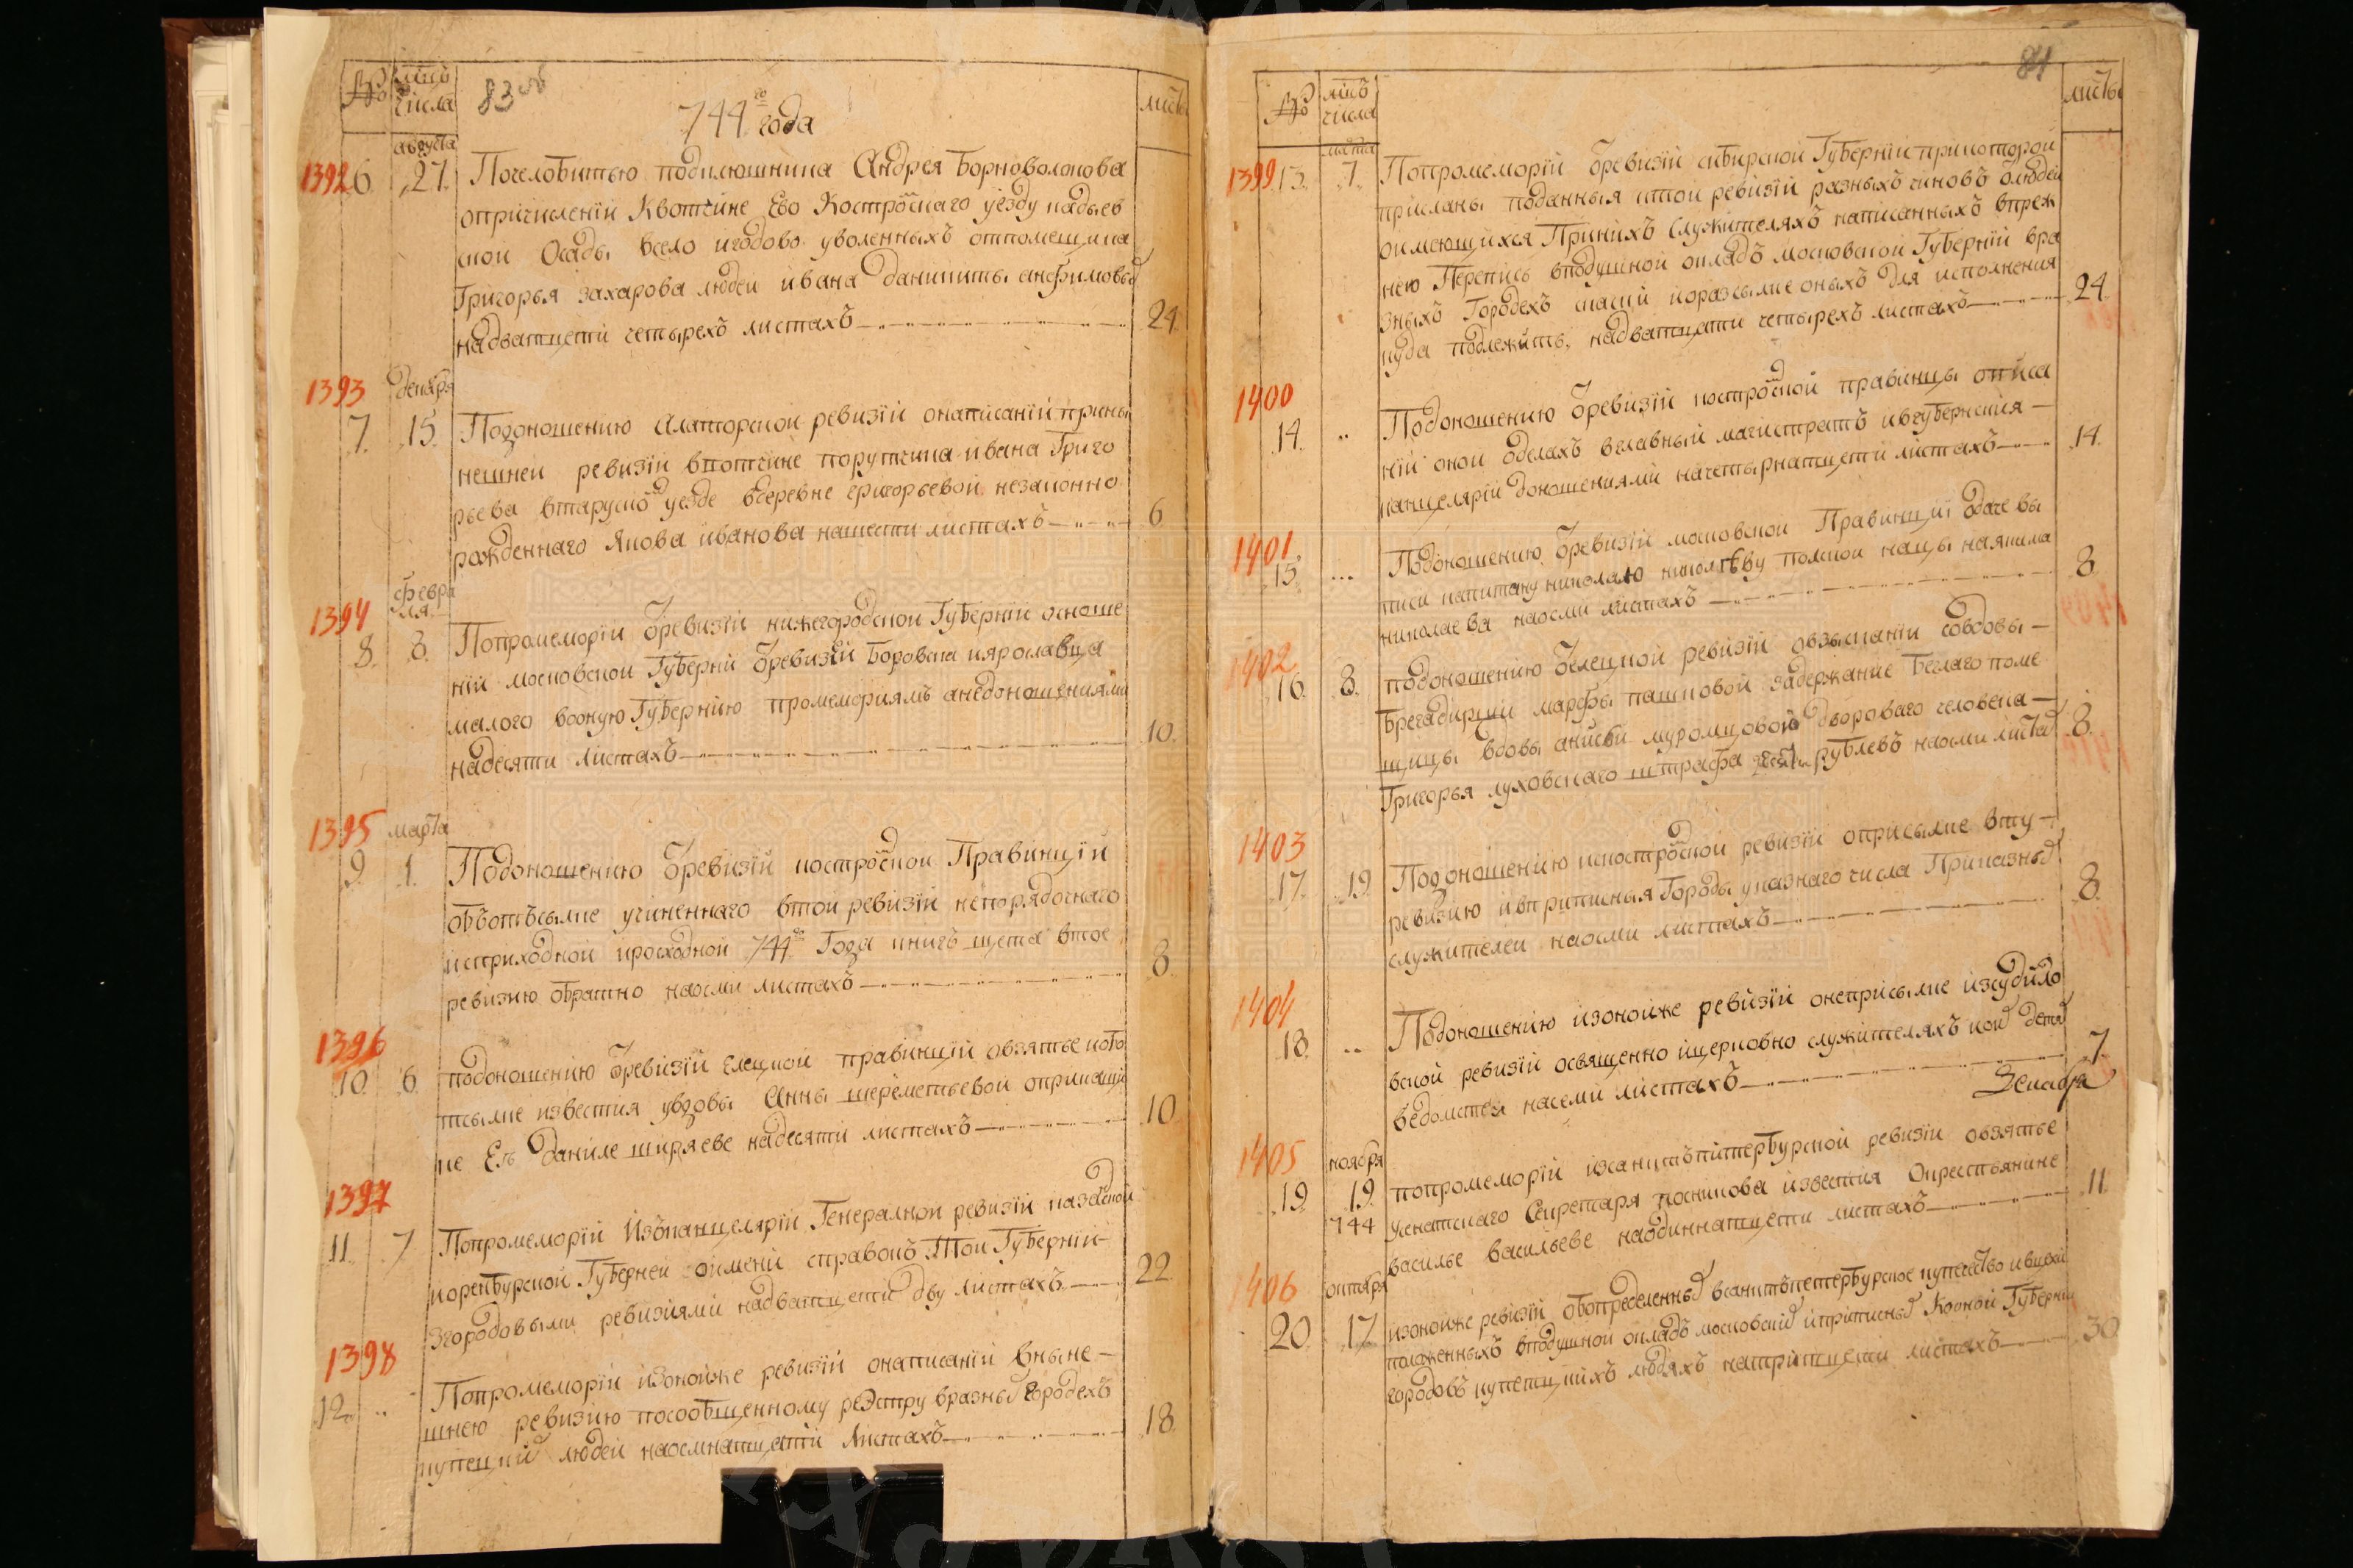 №
мцъ
числа
83 об
744 го года
листы
августа
1392 6 27 По челобитью подключника Андрея Борноволокова
о причислении к вотчине ево Костромскаго уезду
осады в село игодово уволенных от помещика
Григорья захарова людей ивана данилы анфимовых
на дватцети четырехъ листахъ 24
1393 декабря
7 15 По доношению алаторской ревизии о написании при ны
нешней ревизии в вотчине порутчика ивана Григо
рьева в тарускомъ уезде в деревне григорьевой незаконно
рожденнаго Якова иванова на шести листахъ 6
февра
ля
1394
8 8 По промемории Ѿ ревизии нижегородской Губернии о сноше
нии московской Губернии Ѿ ревизии Боровска и ярославца
малого в оную Губернию промемориямъ а не доношениями
на десяти листахъ 10
1395 марта
9 1 По доношению Ѿ ревизии костромской Правинции
об отъсылке учиненнаго в той ревизии непорядочнаго
ис приходной и росходной 744 го Года книгъ щета в тое
ревизию обратно на осми листахъ 8
1396
10 6 по доношению Ѿ ревизии елецкой правинции о взятье и об о
тсылке известия у вдовы Анны шереметьевой о прикащи
ке Ея даниле ширяеве на десяти листахъ 10
1397
11 7 По промемории Изъ канцелярии Генералной ревизии казанской
и оренбурской Губерней о имении справокъ Той Губернии
з городовыми ревизиями на дватцети дву листахъ 22
1398
12 По промемории из оной же ревизии о написании в ныне
шнею ревизию по сообщенному реэстру в разных городехъ
купецких людей на осмнатцати листахъ 18
84
№
мцъ
числа
листы
марта
1399 13 7 По промемории Ѿ ревизии сибирской Губернии при которой
присланы поданныя в той ревизии разныхъ чиновъ о людей
о имеющихся При нихъ служителяхъ написанныхъ в преж
нею Перепись в подушной окладъ московской Губернии в ра
зныхъ Городехъ скаски и о разсылке оныхъ для исполнения
куда подлежитъ, на дватцати четырехъ листахъ 24
1400
14 По доношению Ѿ ревизии костромской правинцы о писа
нии оной о делахъ в главный магистратъ и в губернския
канцелярии доношениями на четырнатцети листахъ 14
1401
15 По доношению Ѿ ревизии московской Правинции о даче вы
писи капитану николаю
николаева на осми листахъ 8
1402
16 8 по доношению Ѿ елецкой ревизии о взыскании со вдовы
брегадирши марфы пашковой за держание беглаго поме
щицы вдовы муромцовой двороваго человека
Григорья луховскаго штрафа рублевъ на осми листах 8
1403
17 19 По доношению ис костромской ревизии о присылке в ту
ревизию и в приписныя Городы указнаго числа Приказных
служителей на осми листахъ 8
1404
18 По доношению из оной же ревизии о неприсылке из судисло
вской ревизии о священно и церковно служителях и о их детех
ведомостей на семи листахъ 7
1405 ноября
19 19 по промемории из санктъпитербурской ревизии о взятье
744 у сенатскаго Секретаря посникова известия О крестьянине
василье васильеве на одиннатцети листахъ 11
1406 октября
20 17 из оной же ревизии об определенных в санктъпетербурское купечество и в цехи
положенныхъ в подушной окладъ московской и приписных К оной Губернии
городовъ купецкихъ людяхъ на трицети листахъ 30